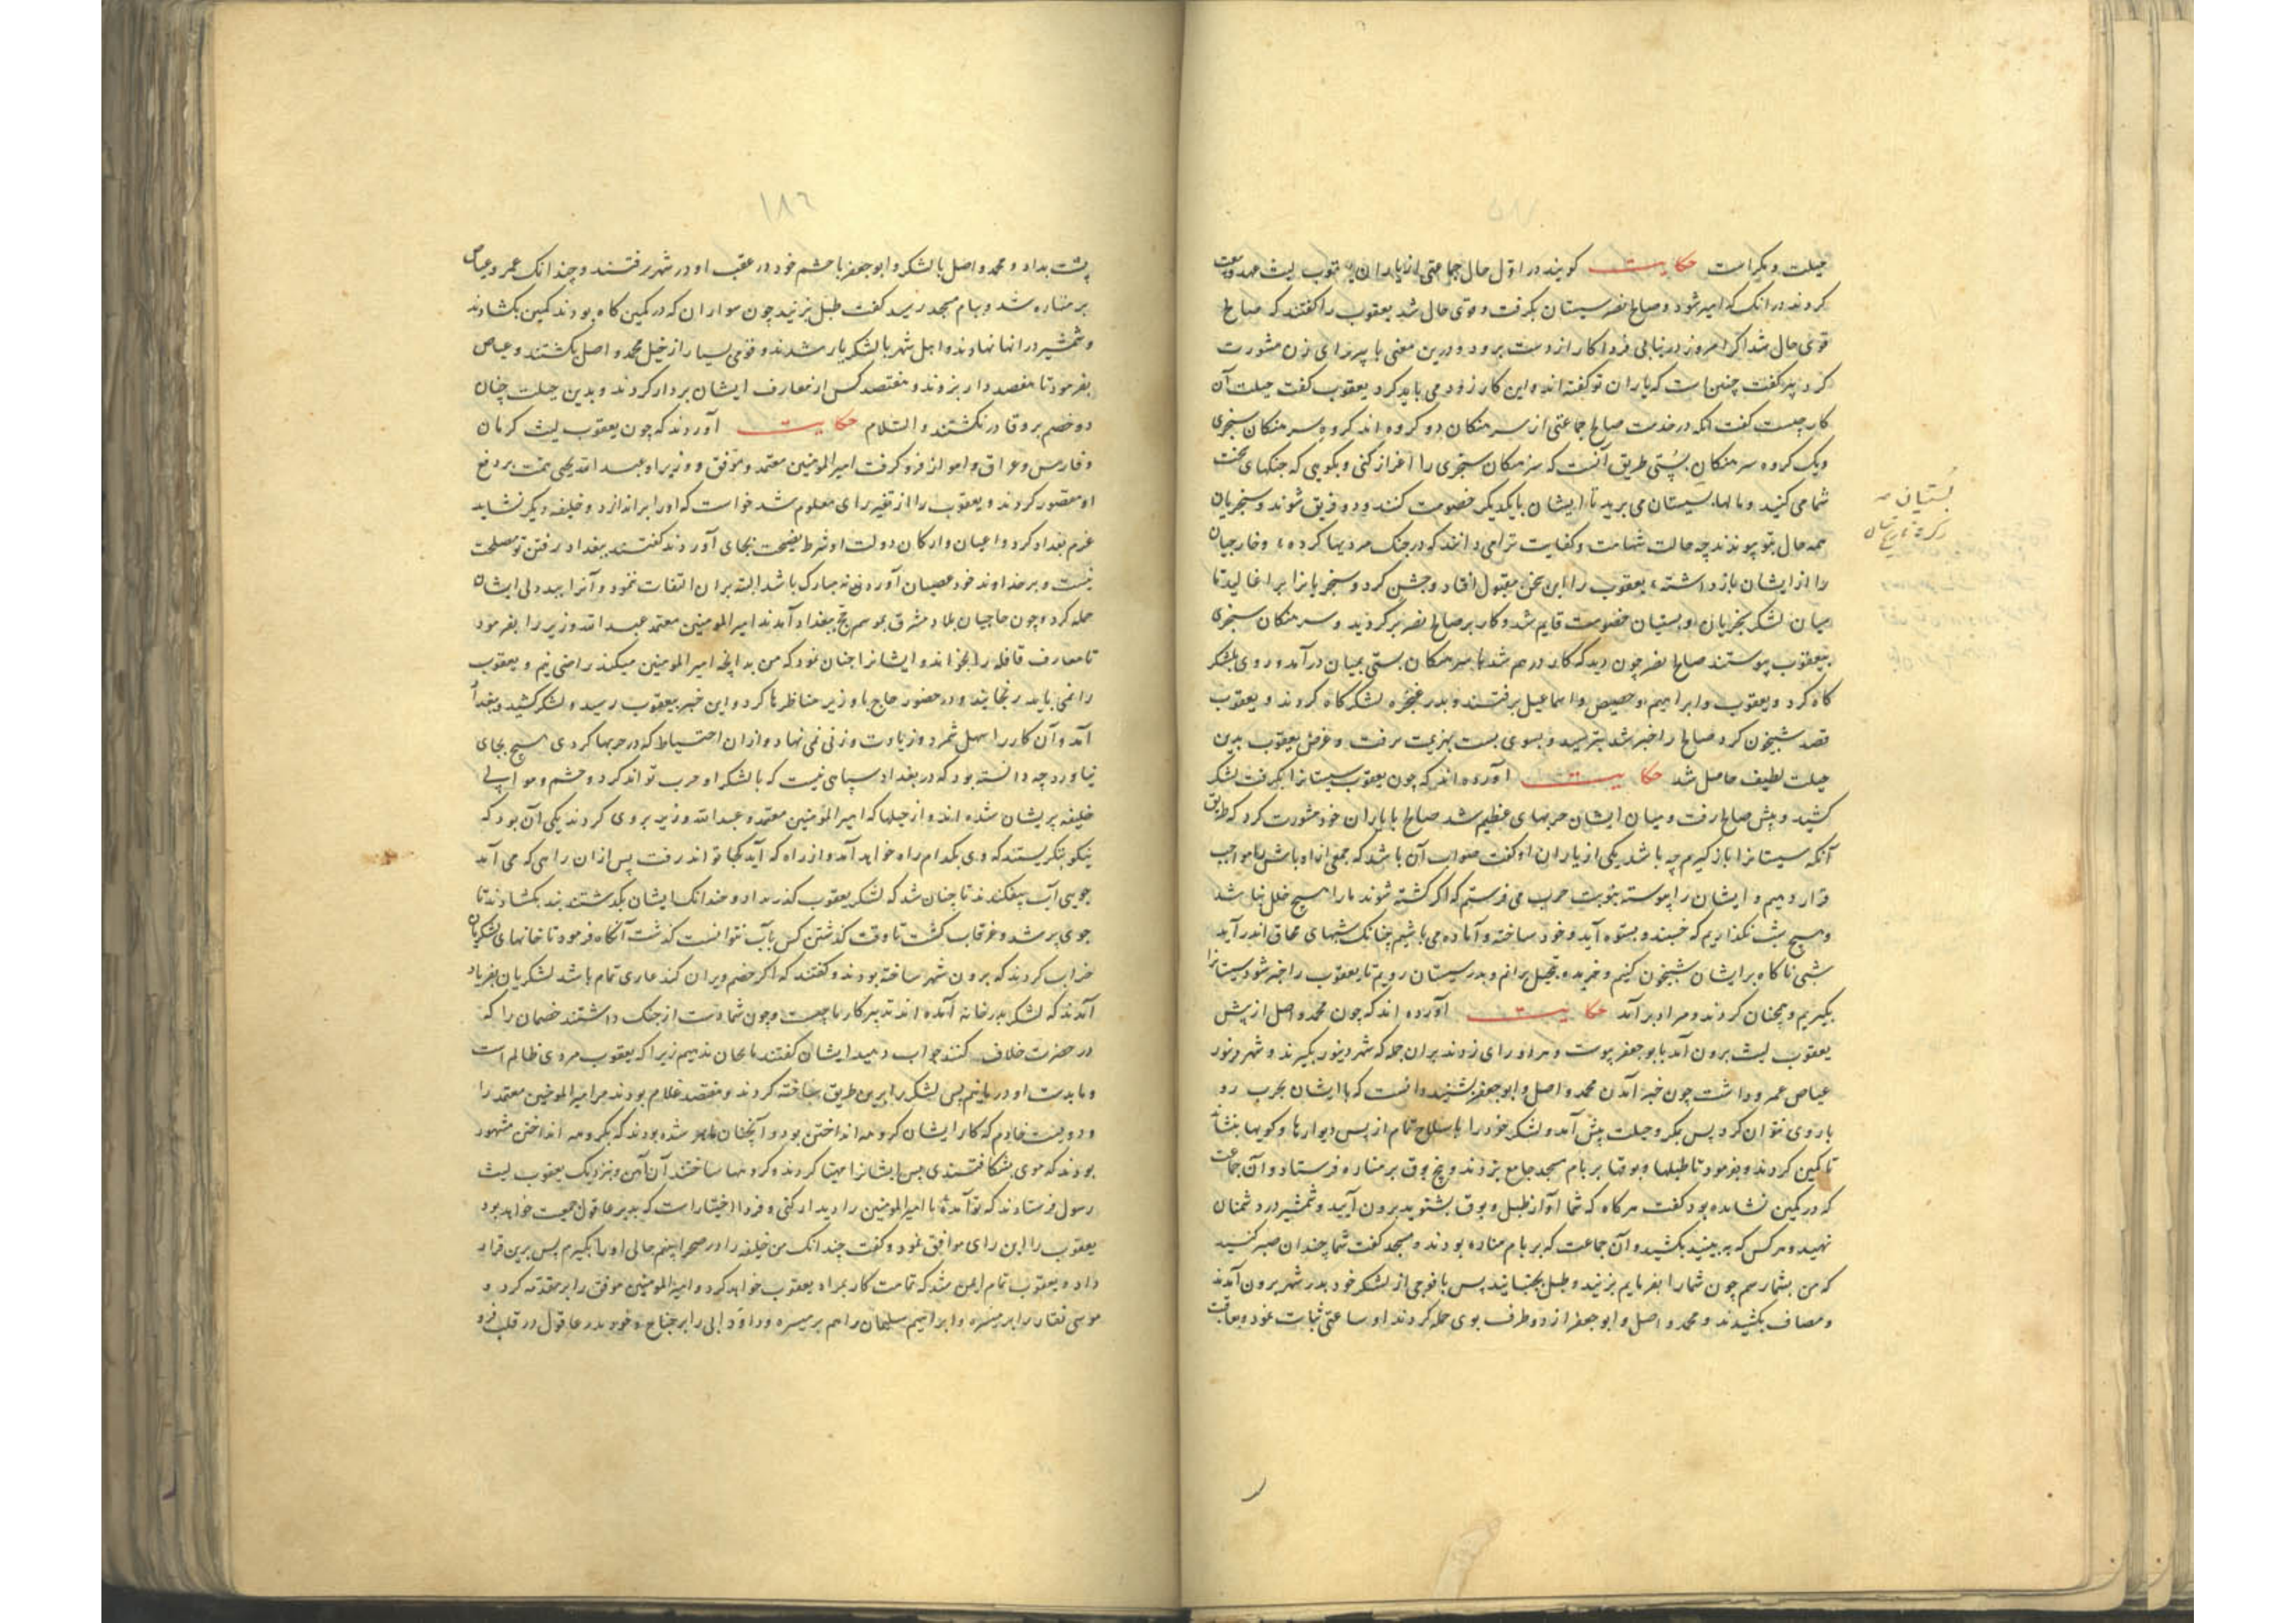 حیلت و مکر است حکایت گویند در اول حال جماعتی از یاران یعقوب لیث عهد و بیعت
کردند در انک که امیر شود و صالح نصر سیستان بکرفت و قوی حال شد یعقوب را کفتند که صالح
قوی حال شد اکر امروز در نیابی فردا کار از دست برود و درین معنی با پیر زای زن مشورت
کرد پیر کفت چنین است که یاران تو کفته اند و این کار زود می باید کرد یعقوب کفت حیلت آن
کار چیست کفت انکه در خدمت صالح جماعتی از سرهنکان دو کروه اند کروه سرهنکان سجزی
ویک کروه سرهنکان بستی طریق آنست که سرهنکان سجزی را اغرا کنی و بکویی که جنکهای سخت
شما می کنید و مالها بستیان می برید تا ایشان با یکدیکر خصومت کنند و دو فریق شوند و سجزیان
همه حال بتو پیوندند چه حالت شهامت و کفایت ترا می دانند که در جنک مردیها کرده و خارجیان
را از ایشان باز داشته یعقوب را این سخن مقبول افتاد و جشن کرد و سجزیانرا بر اغالید تا
میان لشکر سجزیان و بستیان خصومت قایم شد و کار بر صالح نصر بر کردید و سرهنکان سجزی
بیعقوب پیوستند صالح نصر چون دید که کار درهم شد با سرهنکان بستی بمیان درآمد و روی بلشکر
کاه کرد و یعقوب و ابراهیم و حفص و اسماعیل برفتند و بدر غنجره لشکرکاه کردند و یعقوب
قصد شبیخون کرد صالح را خبر شد بترسید و بسوی بست بهزیمت برفت و غرض یعقوب بدین
حیلت لطیف حاصل شد حکایت آورده اند که چون یعقوب سیستانرا بکرفت لشکر
کشید و پیش صالح رفت و میان ایشان حربهای عظیم شد صالح با یاران خود مشورت کرد که طریق
آنکه سیستانرا باز کیریم چه باشد یکی از یاران او کفت صواب آن باشد که جمعی از اوباش را مواجب
قرار دهیم و ایشان را پیوسته بنوبت حرب می فرستیم که اکر کشته شوند ما را هیچ خلل نباشد
و هیچ شب نکذاریم که خسبند و بستوه آیند و خود ساخته و آماده می باشیم چنانک شبهای محاق اندر آید
شبی ناکاه بر ایشان شبیخون کنیم و بتعجیل برانیم و بدر سیستان رویم تا یعقوب را خبر شود سیستانرا
بکیریم و همچنان کردند و مراد بر آمد حکایت آورده اند که چون محمد واصل از پیش
یعقوب لیث برون آمد با بوجعفر پیوست و هر دو رای زدند بران جمله که شهر دینور بکیرند و شهر دینور
عیاض عمرو داشت چون خبر آمدن محمد واصل و ابوجعفر بشنید دانست که با ایشان بحرب رو
باروی نتوان کرد پس بمکر و حیلت پیش آمد و لشکر خود را با سلاح تمام از پس دیوارها و کویها بنشاند
تا کمین کردند و بفرمود تا طبلها و بوقها بر بام مسجد جامع بزدند و پنج بوق بر مناره فرستاد و آن جماعت
که در کمین نشانده بود کفت هر کاه که شما آواز طبل و بوق بشنوید برون آیید و شمشیر در دشمنان
نهید و هر کس که به بینید بکشید و آن جماعت که بر بام مناره بودند و مسجد کفت شما چندان صبر کنید
که من بشما رسم چون شما را بفرمایم بزنید و طبل بجنبانید پس با فوجی از لشکر خود بدر شهر برون آمدند
و مصاف بکشیدند و محمد واصل و ابوجعفر از دو طرف بوی حمله کردند او ساعتی ثبات نمود و بعاقبت
بستیان
۱۸۶
پشت بداد و محمد واصل با لشکر و ابوجعفر با حشم خود در عقب او در شهر رفتند و چندانک عمرو عیاض
بر مناره شد و ببام مسجد رسید کفت طبل بزنید چون سواران که در کمین کاه بودند کمین بکشادند
و شمشیر در انها نهادند و اهل شهر با لشکر یار شدند و قومی بسیار از خیل محمد واصل بکشتند و عیاض
بفرمود تا هفصد دار بزدند و هفتصد کس از معارف ایشان بر دار کردند و بدین حیلت چنان
دو خصم برو قادر نکشتند والسلام حکایت آوردند که چون یعقوب لیث کرمان
و فارس و عراق و اهواز فرو کرفت امیرالمومنین معتمد و موفق و وزیر او عبدالله یحیی همت بر دفع
او مقصور کردند و یعقوب را از تغیر رای معلوم شد خواست که او را براندازد و خلیفه دیکر نشاند
عزم بغداد کرد و اعیان و ارکان دولت او شرط نصیحت بجای آوردند کفتند ببغداد رفتن تو مصلحت
نیست و بر خداوند خود عصیان آوردن نه مبارک باشد البته بران التفات ننمود و آنرا ببد دلی ایشان
حمله کرد و چون حاجیان بلاد مشرق بموسم حج ببغداد آمدند امیرالمومنین معتمد عبدالله وزیر را بفرمود
تا معارف قافله را بخواند و ایشانرا چنان نمود که من بدانچه امیرالمومنین میکند راضی نیم و یعقوب
را نمی باید رنجانید و در حضور حاج با وزیر مناظرها کرد و این خبر بیعقوب رسید و لشکر کشید و ببغداد
آمد و آن کار را سهل شمرد و زیادت وزنی نمی نهاد و ازان احتیاط که در حربها کردی هیچ بجای
نیاورد چه دانسته بود که در بغداد سپاهی نیست که با لشکر او حرب تواند کرد و حشم و موالی
خلیفه پریشان شده اند و از حیلها که امیرالمومنین معتمد و عبدالله وزیر بروی کردند یکی آن بود که
نیکو بنکریستند که وی بکدام راه خواهد آمد و از راه که آید کجا تواند رفت پس ازان راهی که می آمد
جویی آب بیفکندند تا چنان شد که لشکر یعقوب کذر نداد و چندانک ایشان بکذشتند بند بکشادند تا
جوی پر شد و غرقاب کشت تا وقت کذشتن کس بآب نتوانست کذشت آنکاه فرمود تا خانهای لشکریان
خراب کردند که برون شهر ساخته بودند و کفتند که اکر خصم ویران کند عاری تمام باشد لشکریان بفریاد
آمدند که لشکر بدر خانه آمده اند تدبیر کار ما چیست و چون شما دست از جنک داشتند خصمان را که
در حضرت خلاف کنند جواب دهید ایشان کفتند ما بجان بدهیم زیرا که یعقوب مردی ظالم است
و ما بدست او در مانیم پس لشکر را برین طریق ساخته کردند و هفتصد غلام بودند مر امیرالمومنین معتمد را
و دویست خادم که کار ایشان کروهه انداختن بود و آنچنان ماهر شده بودند که بکروهه انداختن مشهور
بودند که موی بشکافتندی پس ایشانرا مهیا کردند و کروهها ساختند آن آهن و نزدیک یعقوب لیث
رسول فرستادند که تو آمدهٔ تا امیرالمومنین را دیدار کنی و فردا اختیار است که بدیر عاقول جمعیت خواهد بود
یعقوب را این رای موافق نمود و کفت چندانک من خلیفه را در صحرا بینم حالی او را بکیرم پس برین قرار
داد و یعقوب تمام ایمن شد که تمامت کار بمراد یعقوب خواهد کرد و امیرالمومنین موفق را بر مقدمه کرد و
موسی بغا را بر میمنه و ابراهیم سلیمان را هم بر میسره و داود ابلی را بر جناح و خود بدر عاقول در قلب فرو